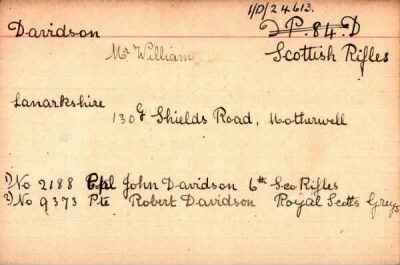 1/D/24613.
Davidson D P.84.D
Mr William Scottish Rifles
Lanarkshire
130 Shields Road, Motherwell
1) No 2188 Cpl John Davidson 6th Sco Rifles
2) No 9373 Pte Robert Davidson Royal Scotts Greys